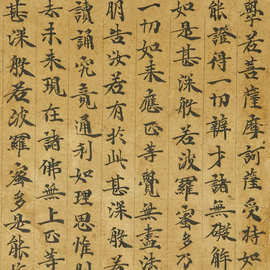 學若菩薩摩訶薩受持如
能證得一切辯才諸無礙解
如是甚深般若波羅蜜多乃
一切如來應正等覺無盡法
明告汝若有於此甚深般若
讀誦究竟通利如理思惟則
去未來現在諸佛無上正等
甚深般若波羅蜜多是能